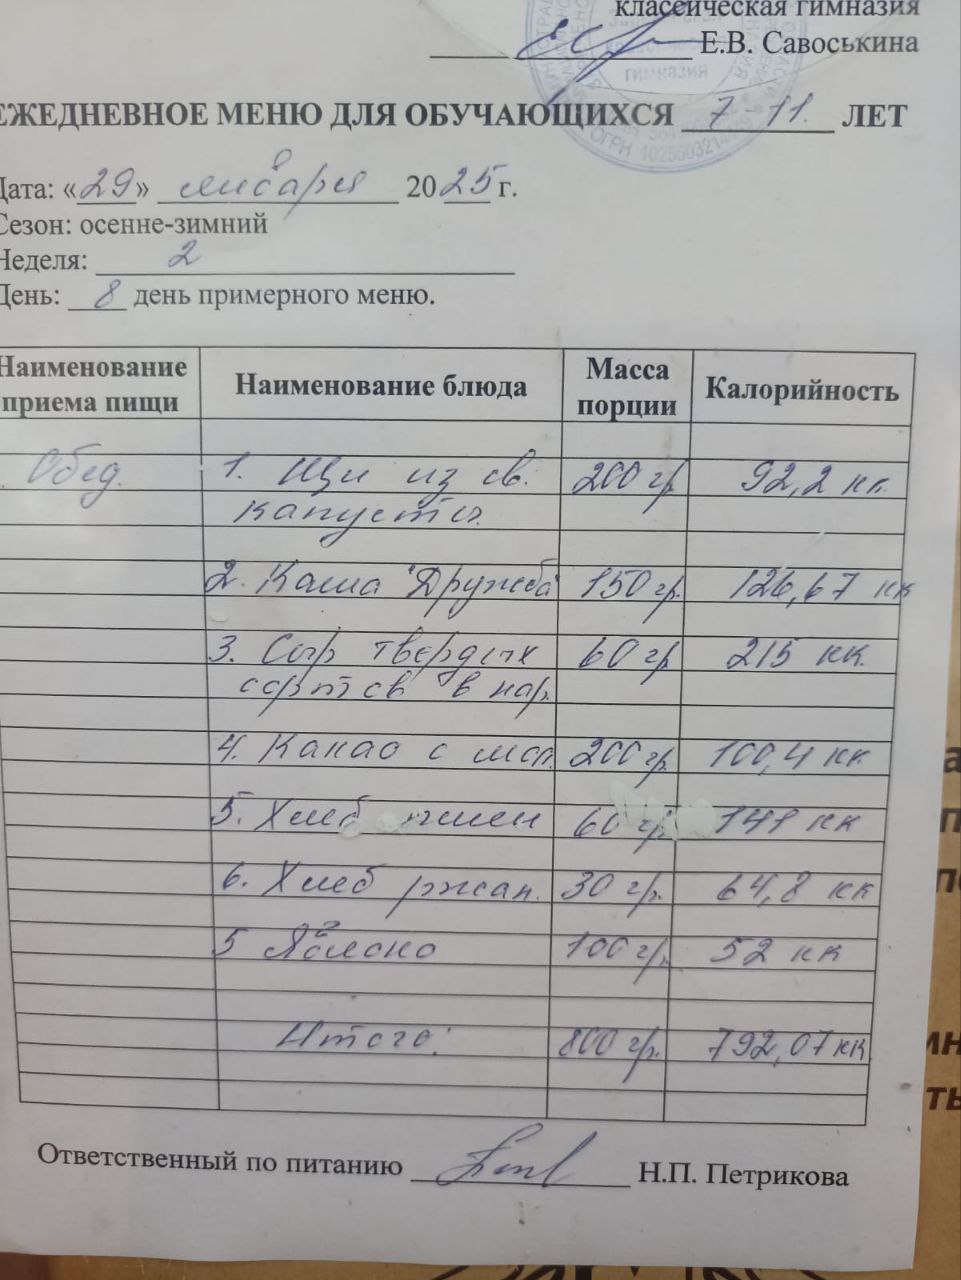 классическая гимназия
Е.В. Савоськина
гимназия
ОГРН
ЕЖЕДНЕВНОЕ МЕНЮ ДЛЯ ОБУЧАЮЩИХСЯ 7 11. ЛЕТ
Дата: «29» января 2025 г.
Сезон: осенне-зимний
Неделя: 2
День: 8 день примерного меню.
Наименование приема пищи Наименование блюда Масса порции Калорийность
Обед. 1. Щи из св. 200 гр 92,2 кк.
капусты.
2. Каша "Дружба" 150 гр. 126,67 кк
3. Сыр твердых 60 гр 215 кк.
сортов в нар.
4. Какао с мол. 200 гр. 100,4 кк
5. Хлеб пшен 60 гр. 141 кк
6. Хлеб ржан. 30 гр. 64,8 кк
5 Яблоко 100 гр. 52 кк
Итого: 800 гр. 792,07 кк
Ответственный по питанию Н.П. Петрикова